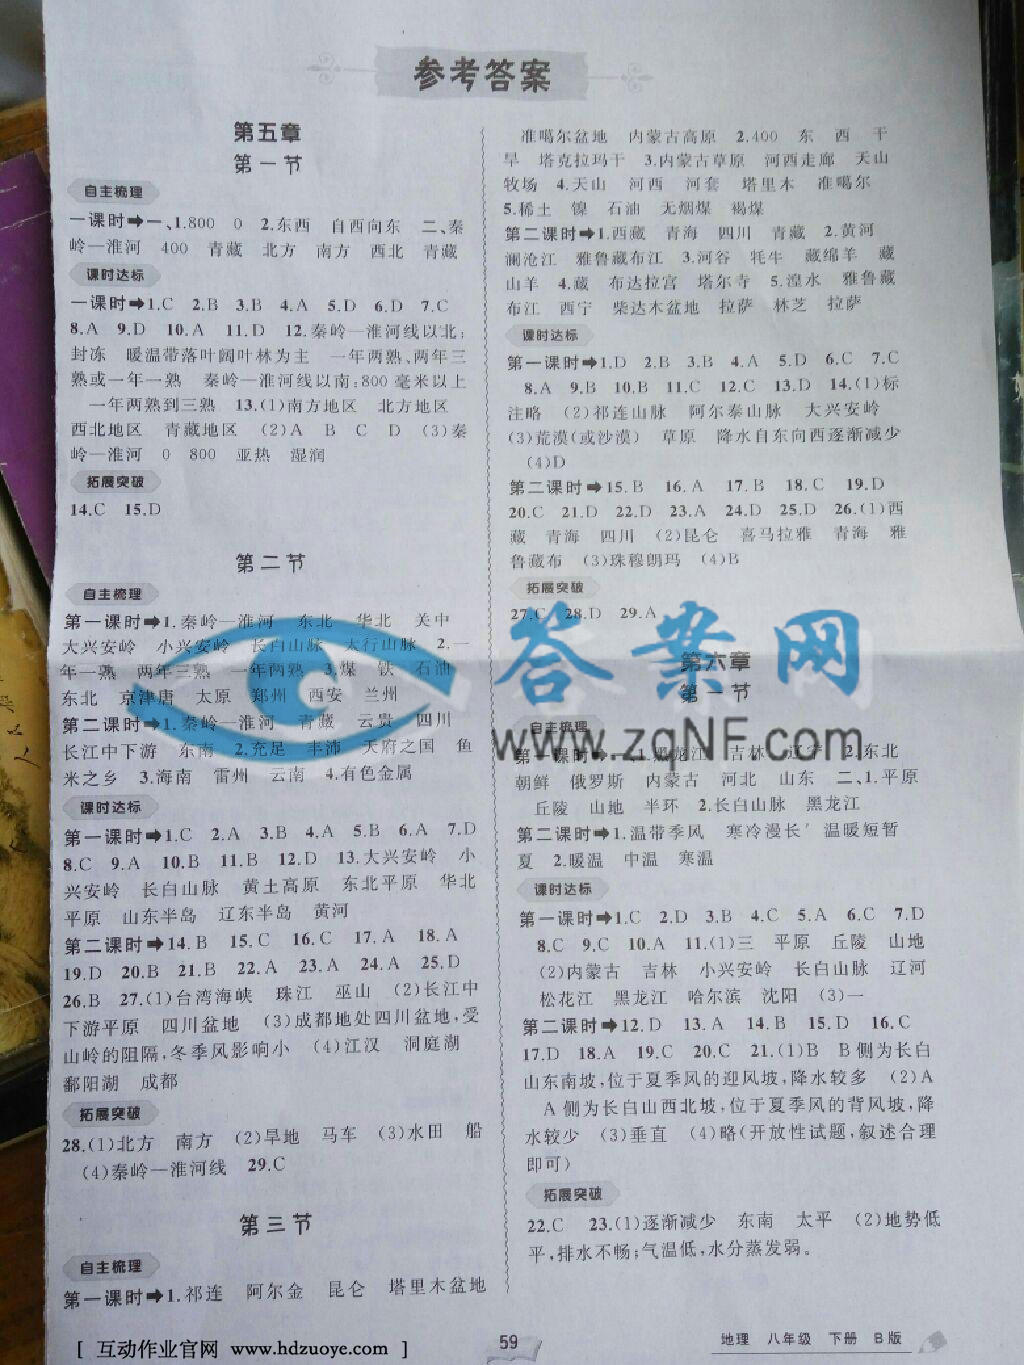 参考答案
第五章
第一节
自主梳理
一课时➡一、1.800 0 2.东西 自西向东 二、秦
岭—淮河 400 青藏 北方 南方 西北 青藏
课时达标
一课时➡1.C 2.B 3.B 4.A 5.D 6.D 7.C
8.A 9.D 10.A 11.D 12.秦岭—淮河线以北:
封冻 暖温带落叶阔叶林为主 一年两熟、两年三
熟或一年一熟 秦岭—淮河线以南:800毫米以上
一年两熟到三熟 13.(1)南方地区 北方地区
西北地区 青藏地区 (2)A B C D (3)秦
岭—淮河 0 800 亚热 湿润
拓展突破
14.C 15.D
第二节
自主梳理
第一课时➡1.秦岭—淮河 东北 华北 关中
大兴安岭 小兴安岭 长白山脉 太行山脉 2.一
年一熟 两年三熟 一年两熟 3.煤 铁 石油
东北 京津唐 太原 郑州 西安 兰州
第二课时➡1.秦岭—淮河 青藏 云贵 四川
长江中下游 东南 2.充足 丰沛 天府之国 鱼
米之乡 3.海南 雷州 云南 4.有色金属
课时达标
第一课时➡1.C 2.A 3.B 4.A 5.B 6.A 7.D
8.C 9.A 10.B 11.B 12.D 13.大兴安岭 小
兴安岭 长白山脉 黄土高原 东北平原 华北
平原 山东半岛 辽东半岛 黄河
第二课时➡14.B 15.C 16.C 17.A 18.A
19.D 20.B 21.B 22.A 23.A 24.A 25.D
26.B 27.(1)台湾海峡 珠江 巫山 (2)长江中
下游平原 四川盆地 (3)成都地处四川盆地,受
山岭的阻隔,冬季风影响小 (4)江汉 洞庭湖
鄱阳湖 成都
拓展突破
28.(1)北方 南方 (2)旱地 马车 (3)水田 船
(4)秦岭—淮河线 29.C
第三节
自主梳理
第一课时➡1.祁连 阿尔金 昆仑 塔里木盆地
准噶尔盆地 内蒙古高原 2.400 东 西 干
旱 塔克拉玛干 3.内蒙古草原 河西走廊 天山
牧场 4.天山 河西 河套 塔里木 准噶尔
5.稀土 镍 石油 无烟煤 褐煤
第二课时➡1.西藏 青海 四川 青藏 2.黄河
澜沧江 雅鲁藏布江 3.河谷 牦牛 藏绵羊 藏
山羊 4.藏 布达拉宫 塔尔寺 5.湟水 雅鲁藏
布江 西宁 柴达木盆地 拉萨 林芝 拉萨
课时达标
第一课时➡1.D 2.B 3.B 4.A 5.D 6.C 7.C
8.A 9.B 10.B 11.C 12.C 13.D 14.(1)标
注略 (2)祁连山脉 阿尔泰山脉 大兴安岭
(3)荒漠(或沙漠) 草原 降水自东向西逐渐减少
(4)D
第二课时➡15.B 16.A 17.B 18.C 19.D
20.C 21.D 22.D 23.A 24.D 25.D 26.(1)西
藏 青海 四川 (2)昆仑 喜马拉雅 青海 雅
鲁藏布 (3)珠穆朗玛 (4)B
拓展突破
27.C 28.D 29.A
第六章
第一节
自主梳理
第一课时➡一、1.黑龙江 吉林 辽宁 2.东北
朝鲜 俄罗斯 内蒙古 河北 山东 二、1.平原
丘陵 山地 半环 2.长白山脉 黑龙江
第二课时➡1.温带季风 寒冷漫长 温暖短暂
夏 2.暖温 中温 寒温
课时达标
第一课时➡1.C 2.D 3.B 4.C 5.A 6.C 7.D
8.C 9.C 10.A 11.(1)三 平原 丘陵 山地
(2)内蒙古 吉林 小兴安岭 长白山脉 辽河
松花江 黑龙江 哈尔滨 沈阳 (3)一
第二课时➡12.D 13.A 14.B 15.D 16.C
17.D 18.A 19.C 20.C 21.(1)B B侧为长白
山东南坡,位于夏季风的迎风坡,降水较多 (2)A
A侧为长白山西北坡,位于夏季风的背风坡,降
水较少 (3)垂直 (4)略(开放性试题,叙述合理
即可)
拓展突破
22.C 23.(1)逐渐减少 东南 太平 (2)地势低
平,排水不畅;气温低,水分蒸发弱。
答案网
www.zqNF.com
59
地理 八年级 下册 B版
[ 互动作业官网 www.hdzuoye.com ]